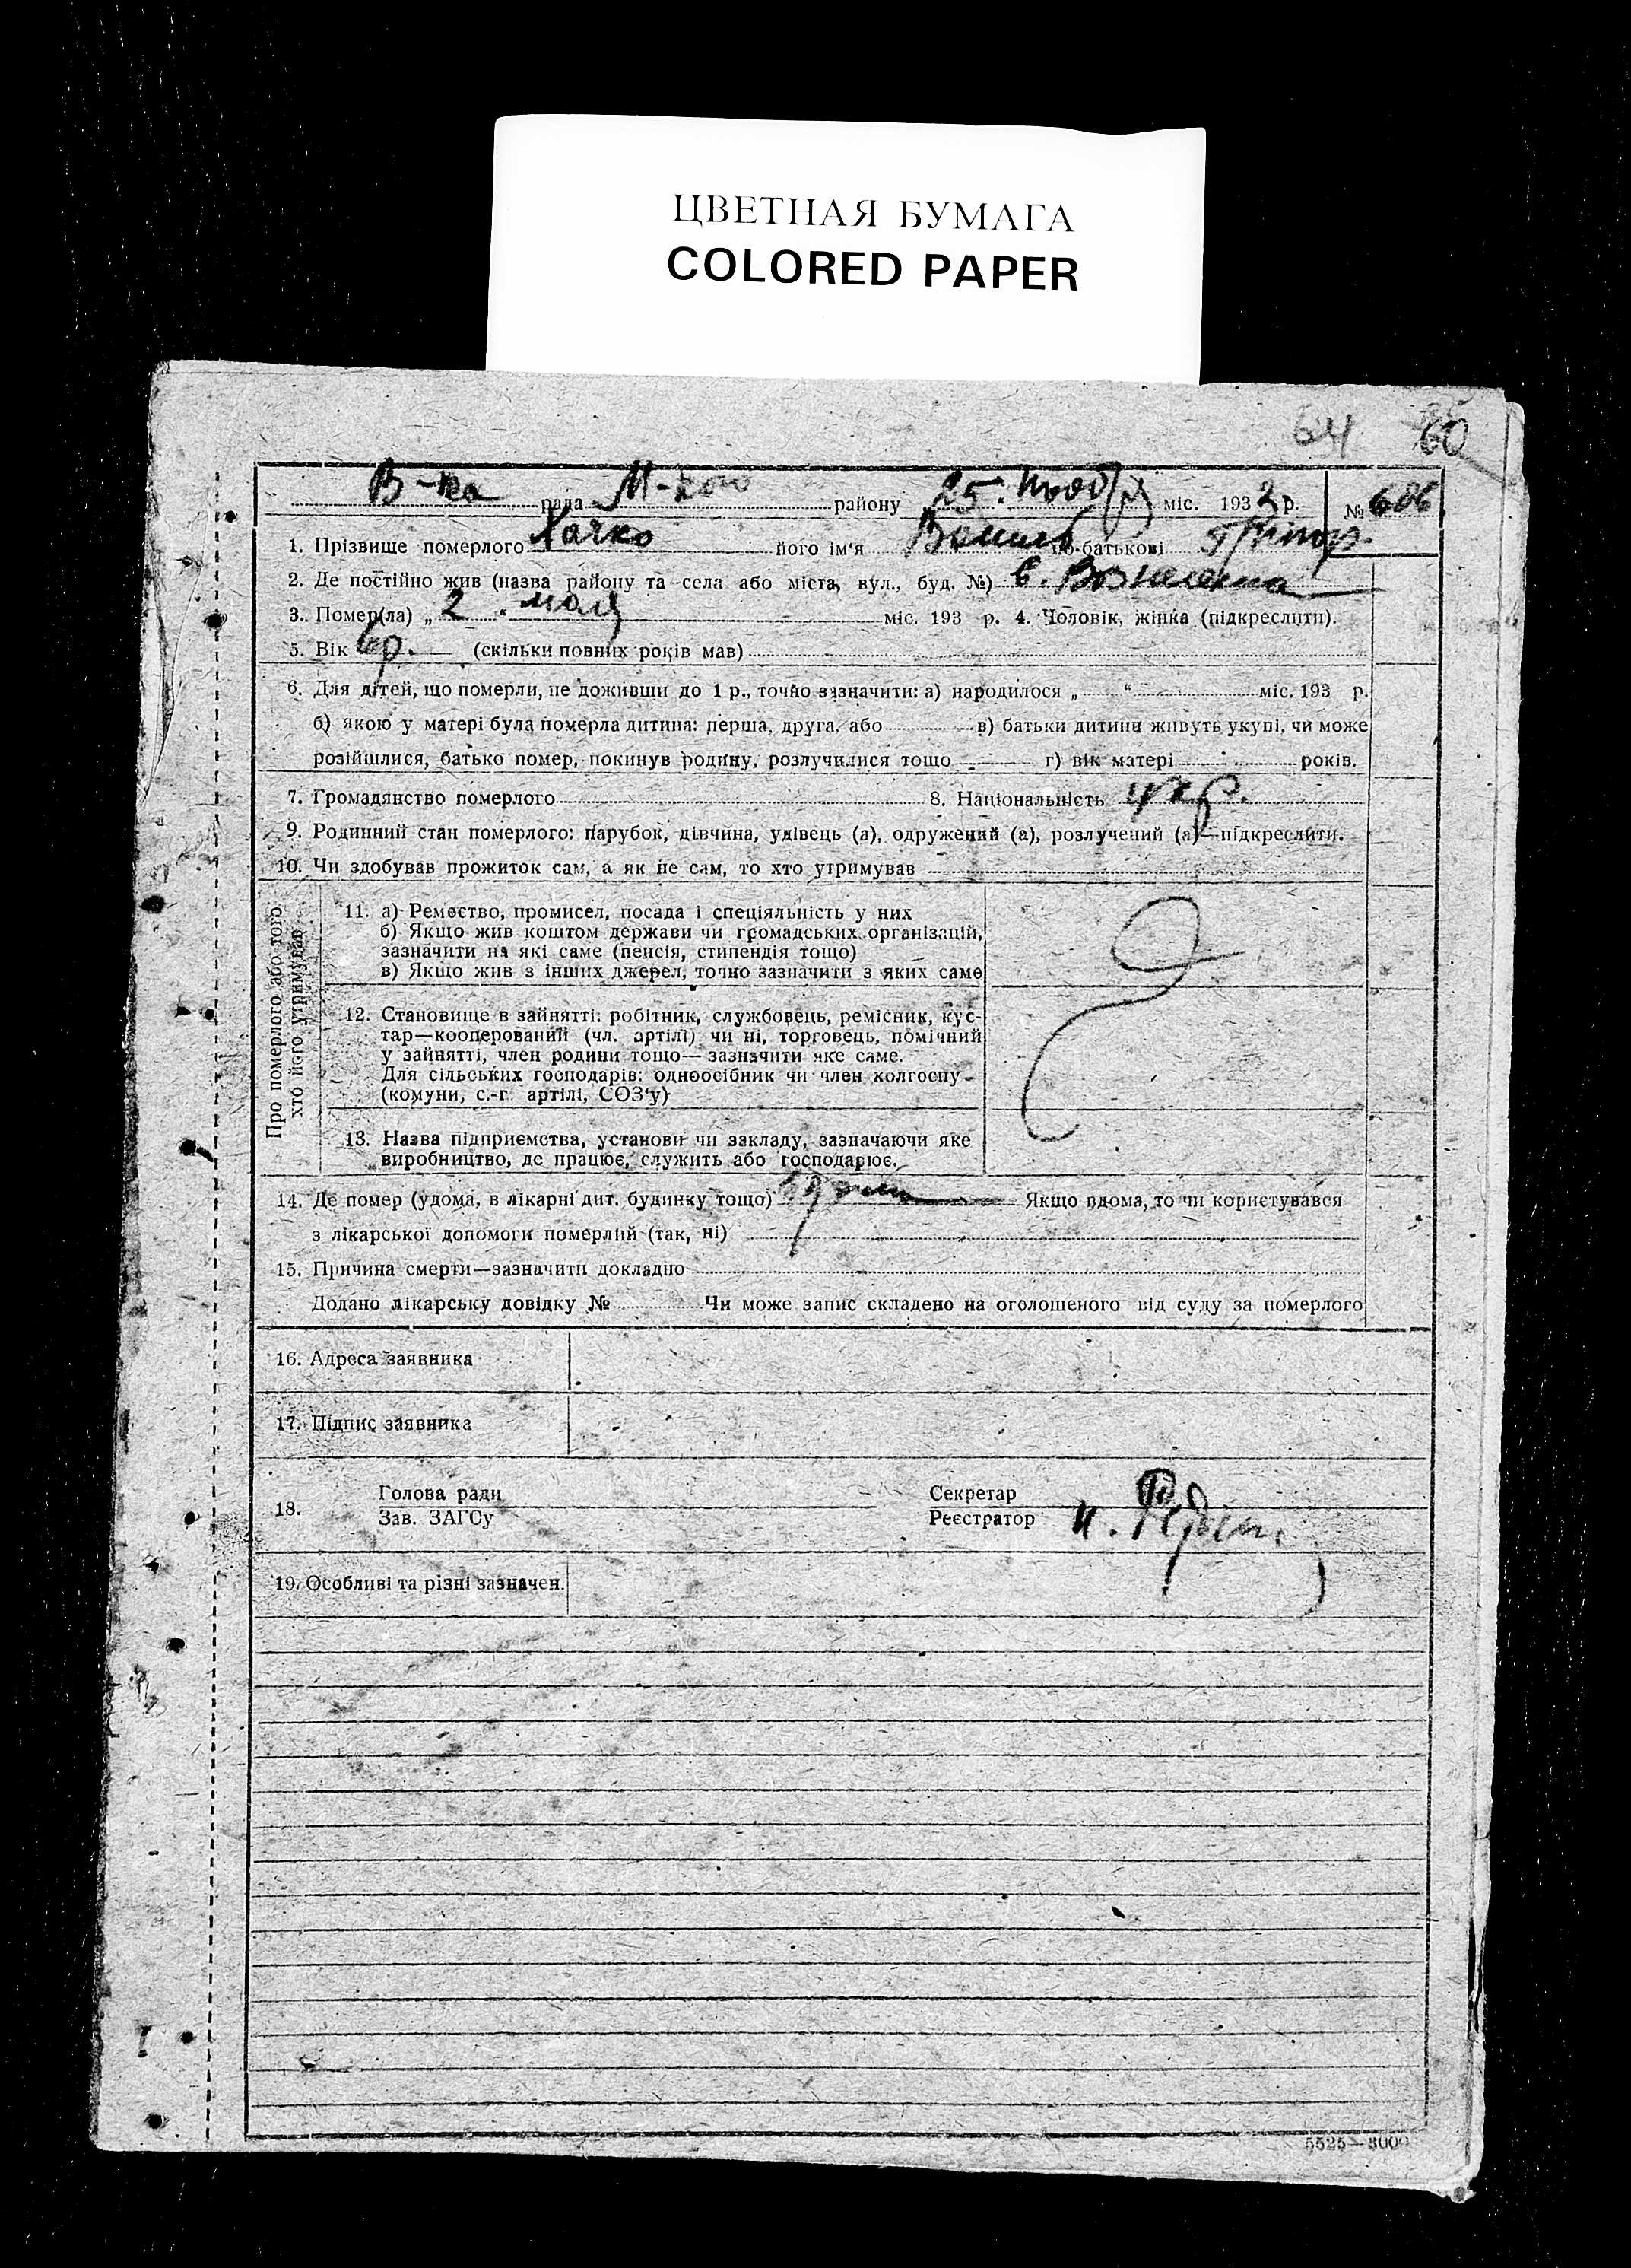 ЦВЕТНАЯ БУМАГА
COLORED PAPER
64 60
В-ка рада М-кого району 25 міс. 1933 р. № 686
1. Прізвище померлого Хачко його ім'я Василь по-батькові Григор.
2. Де постійно жив (назва району та села або міста, вул., буд. №) с.
3. Помер(ла) „ 2 мая міс. 193 р. 4. Чоловік, жінка (підкреслити).
5. Вік р. (скільки повних років мав)
6. Для дітей, що померли, не доживши до 1 р., точно зазначити: а) народилося „ “ міс. 193 р.
б) якою у матері була померла дитина: перша, друга, або в) батьки дитини живуть укупі, чи може
розійшлися, батько помер, покинув родину, розлучилися тощо г) вік матері років.
7. Громадянство померлого 8. Національність укр.
9. Родинний стан померлого: парубок, дівчина, удівець (а), одружений (а), розлучений (а)—підкреслити.
10. Чи здобував прожиток сам, а як не сам, то хто утримував
Про померлого або того
хто його утримував
11. а) Ремество, промисел, посада і спеціяльність у них
б) Якщо жив коштом держави чи громадських організацій,
зазначити на які саме (пенсія, стипендія тощо)
в) Якщо жив з інших джерел, точно зазначити з яких саме
12. Становище в зайнятті: робітник, службовець, ремісник, кус-
тар—кооперований (чл. артілі) чи ні, торговець, помічний
у зайнятті, член родини тощо— зазначити яке саме.
Для сільських господарів: одноосібник чи член колгоспу
(комуни, с.-г. артілі, СОЗ'у)
13. Назва підприємства, установи чи закладу, зазначаючи яке
виробництво, де працює, служить або господарює.
14. Де помер (удома, в лікарні дит. будинку тощо) Якщо вдома, то чи користувався
з лікарської допомоги померлий (так, ні)
15. Причина смерти—зазначити докладно
Додано лікарську довідку № Чи може запис складено на оголошеного від суду за померлого
16. Адреса заявника
17. Підпис заявника
18. Голова ради Секретар
Зав. ЗАГСу Реєстратор
19. Особливі та різні зазначен.
5525—3000